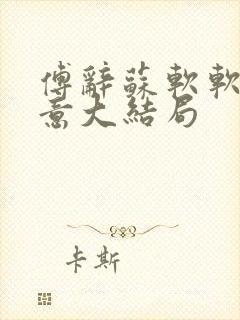 傅辭蘇軟軟
意大結局
卡斯